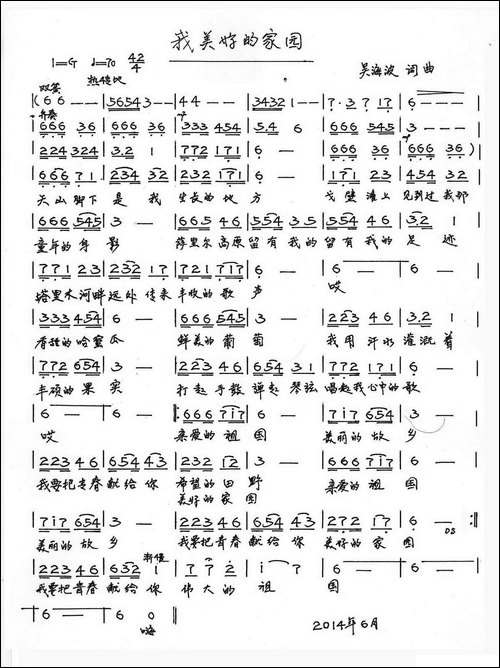 我美好的家园
1=G ♩=70 42/4
吴海波 词曲
热情地
双簧
(6 6 — — | 5654 3 — — | 4 4 — — | 3432 1 — — | 7 · 3 7 17 | 6 — — — |
齐奏
666 36 | 666 36 | 333 454 | 5.4 6 | 666 545 | 3 — — |
224 324 | 3.2 1 | 772 171 | 6 — | 666 36 | 666 36) |
666 71 | 234 32 | 232 171 | 6 — | 171 23 | 454 32 |
天山脚下 是 我 生长的地 方 戈壁滩上 见到过我那
666 545 | 3 — | 665 46 | 554 35 | 554 46 | 3.2 1 |
童年的身 影 塔里尔高原留有我的留有我的足 迹
771 23 | 232 17 | 721 717 | 6 — | 6 — | 6 — |
塔里木河畔远处传来丰收的歌 声 哎
333 454 | 6 — | 666 545 | 3 — | 223 46 | 3.2 1 |
香甜的哈蜜瓜 鲜美的葡萄 我用汗水灌溉着
772 654 | 3 — | 223 46 | 654 36 | 223 46 | 772 176 |
丰硕的果 实 打起手鼓弹起琴弦唱起我心中的歌
6 — | 6 — |: 666 717 | 6 — | 717 654 | 3 — |
哎 亲爱的祖 国 美丽的故 乡
223 46 | 654 43 | 232 12 | 3 — | 666 717 | 6 — |
我要把青春献给你 希望的田 野 亲爱的祖 国
美好的家 园
717 654 | 3 — | 223 46 | 654 43 | 272 17 | 6 — :||
美丽的故 乡 我要把青春献给你 美好的家 园
DS
渐慢
223 46 | 6532 1 | 7 7 2 | 1 · 7 | 6 — | 6 — |
我要把青春献给你 伟大的 祖 国
6 — | 6 0 ||
嗨
2014年6月